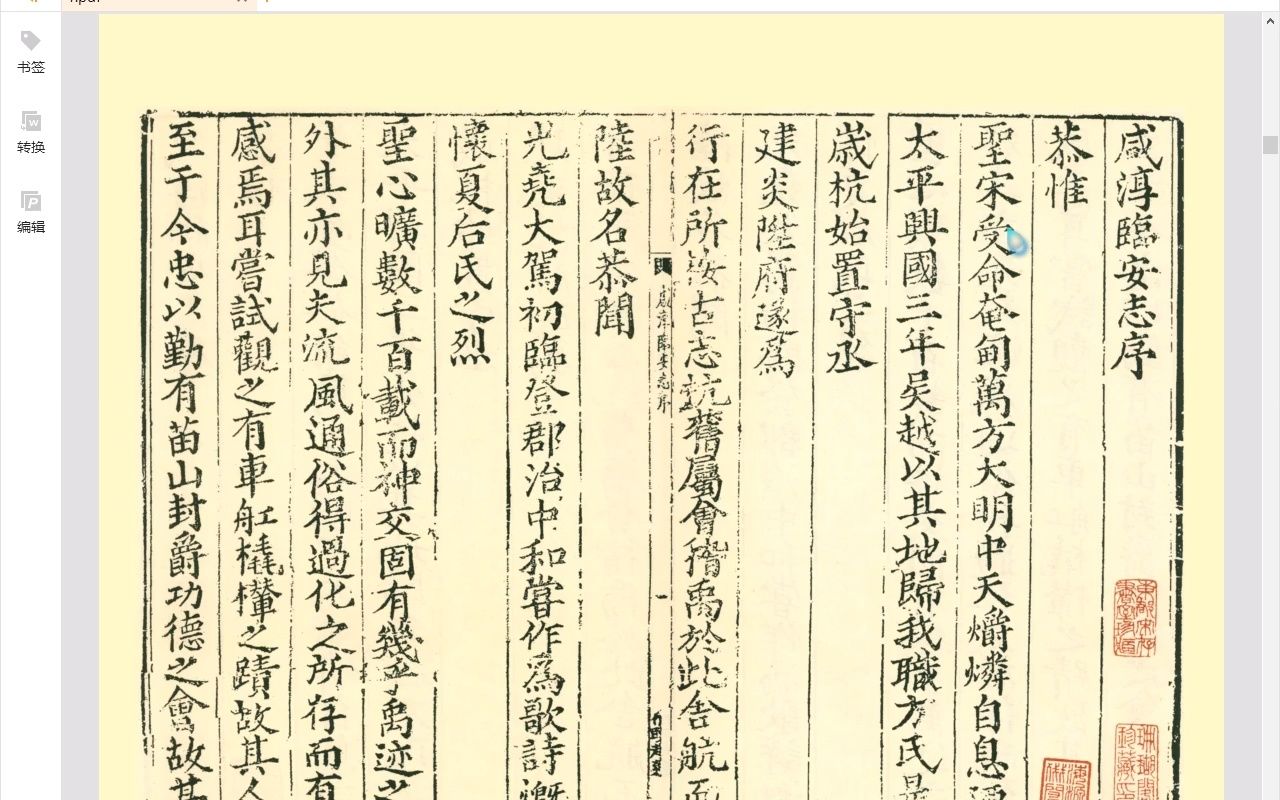 咸淳臨安志序
恭惟
聖宋受命奄甸萬方大明中天爝燐自息迺
太平興國三年吳越以其地歸我職方氏是
歲杭始置守丞
建炎陞府遂爲
行在所按古志杭舊屬會稽禹於此舍航而
陸故名恭聞
光堯大駕初臨登郡治中和嘗作爲歌詩慨
懷夏后氏之烈
聖心曠數千百載而神交固有幾乎禹迹之
外其亦見夫流風通俗得過化之所存而有
感焉耳嘗試觀之有車舡橇欙之蹟故其人
至于今忠以勤有苗山封爵功德之會故其
咸淳臨安志序
一
書签
转换
编辑